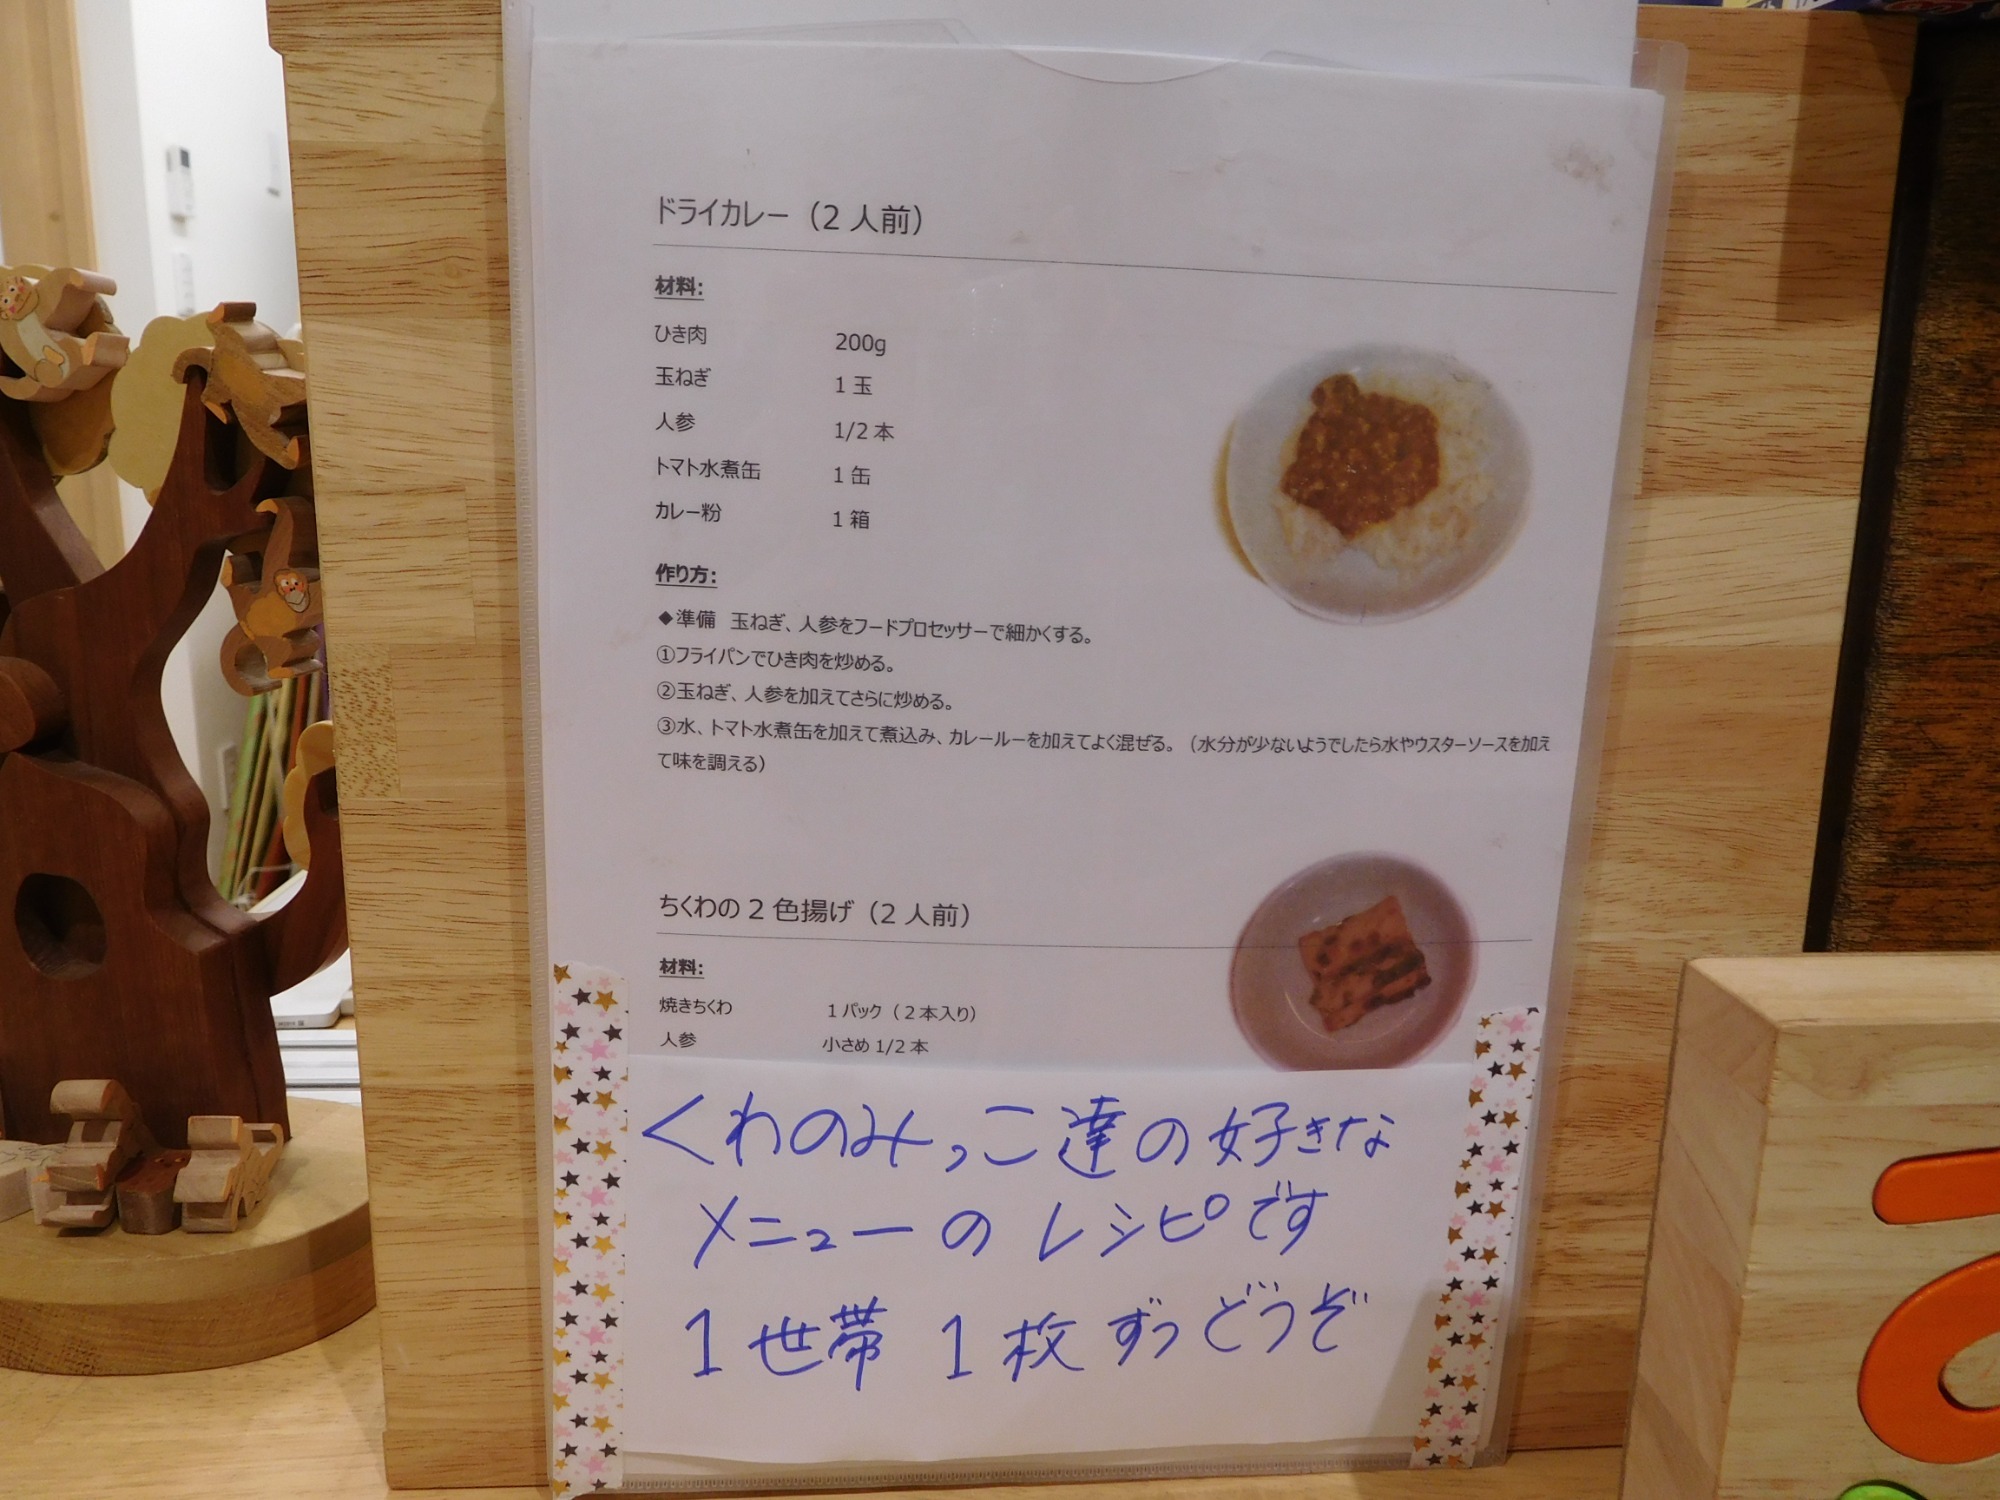 ドライカレー（2 人前）
材料:
ひき肉 200g
玉ねぎ 1 玉
人参 1/2 本
トマト水煮缶 1 缶
カレー粉 1 箱
作り方:
◆準備 玉ねぎ、人参をフードプロセッサーで細かくする。
①フライパンでひき肉を炒める。
②玉ねぎ、人参を加えてさらに炒める。
③水、トマト水煮缶を加えて煮込み、カレールーを加えてよく混ぜる。（水分が少ないようでしたら水やウスターソースを加え
て味を調える）
ちくわの 2 色揚げ（2 人前）
材料:
焼きちくわ 1 パック（2 本入り）
人参 小さめ 1/2 本
くわのみっこ達の好きな
メニューの レシピです
1世帯 1枚ずつどうぞ